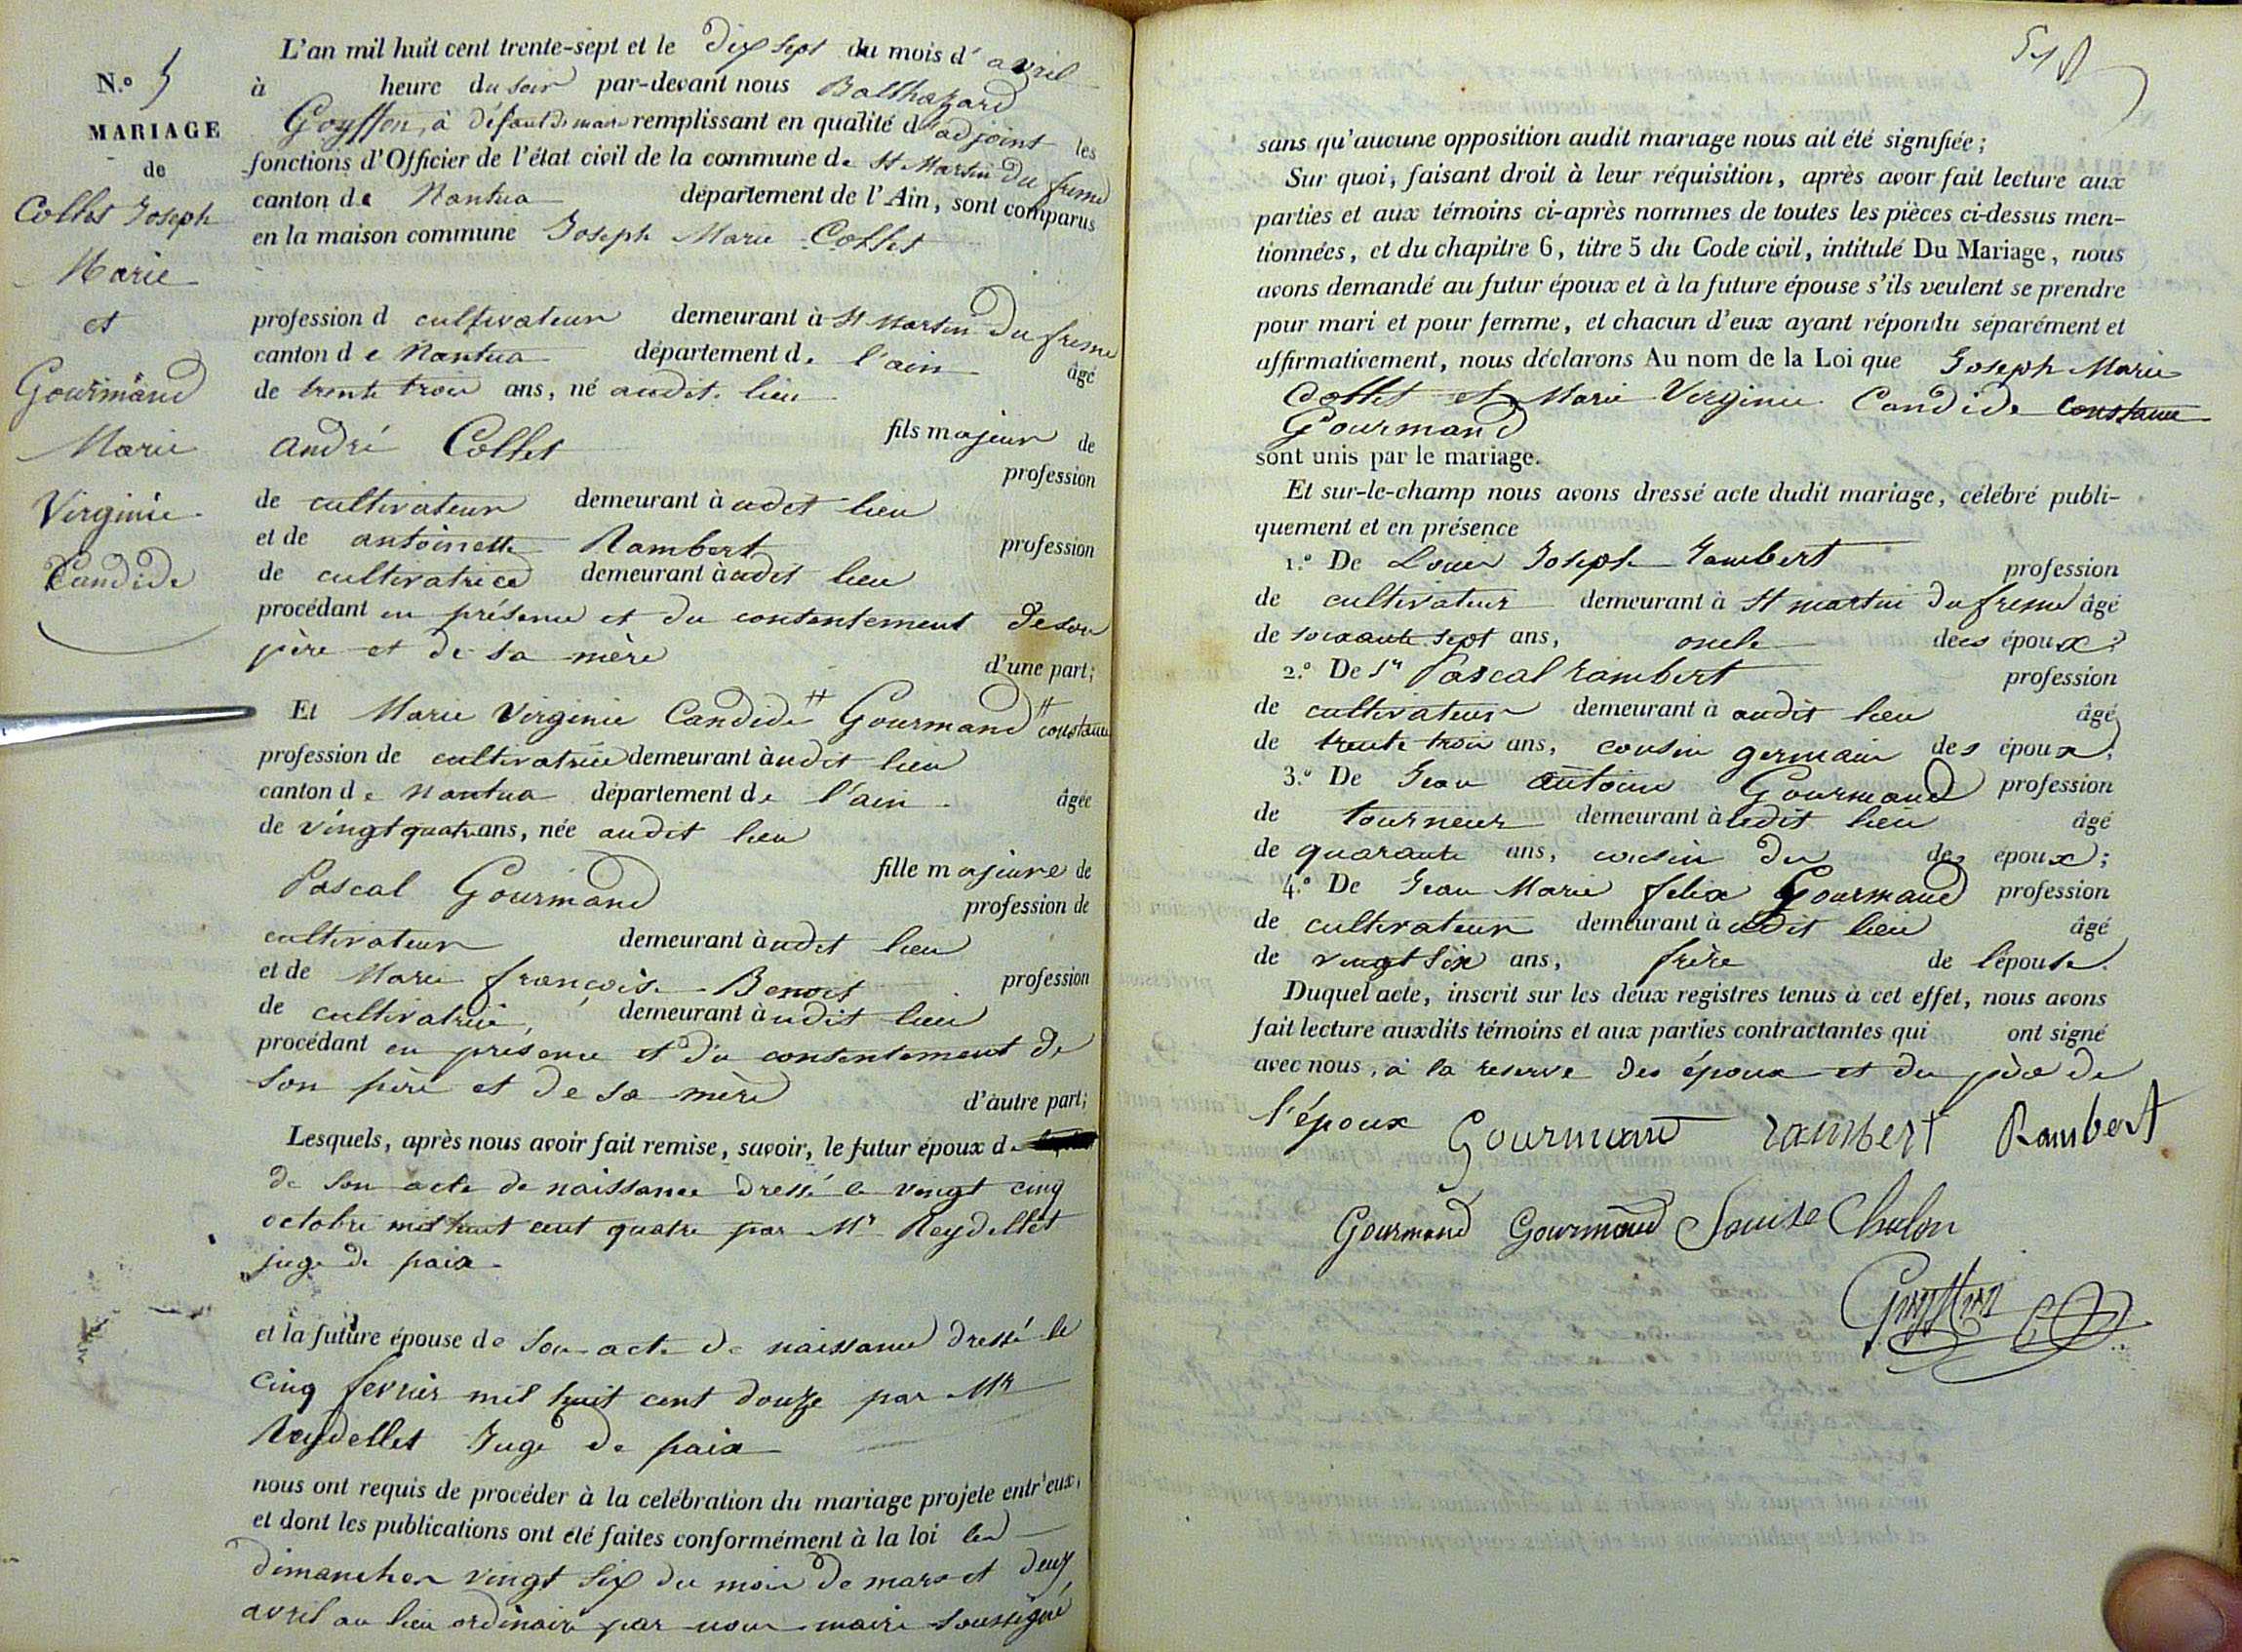 N.o 5
MARIAGE
de
Collet Joseph
Marie
et
Gourmand
Marie
Virginie
Candide
L'an mil huit cent trente-sept et le dix sept du mois d'avril
à heure du soir par-devant nous Balthazard
Goyffon, à défaut de maire remplissant en qualité d'adjoint les
fonctions d'Officier de l'état civil de la commune de St Martin du fresne
canton de Nantua département de l'Ain, sont comparus
en la maison commune Joseph Marie Collet
profession d cultivateur demeurant à St Martin du fresne
canton de Nantua département de l'ain âgé
de trente trois ans, né audit lieu
fils majeur de
andré Collet profession
de cultivateur demeurant à udit lieu
et de antoinette Rambert profession
de cultivatrice demeurant à udit lieu
procédant en présence et du consentement de son
père et de sa mère d'une part;
Et Marie Virginie Candide # Gourmand # constance
profession de cultivatrice demeurant à udit lieu
canton de Nantua département de l'ain âgée
de vingt quatre ans, née audit lieu
fille majeure de
Pascal Gourmand profession de
cultivateur demeurant à udit lieu
et de Marie françoise Benoit profession
de cultivatrice, demeurant à udit lieu
procédant en présence et du consentement de
son père et de sa mère d'autre part;
Lesquels, après nous avoir fait remise, savoir, le futur époux de
de son acte de naissance dressé le vingt cinq
octobre mil huit cent quatre par Mr Reydellet
juge de paix
et la future épouse de son acte de naissance dressé le
cinq fevrier mil huit cent douze par Mr
Reydellet Juge de paix
nous ont requis de procéder à la célébration du mariage projeté entr'eux,
et dont les publications ont été faites conformément à la loi les
dimanches vingt six du mois de mars et deux
avril au lieu ordinaire par nous maire soussigné
sans qu'aucune opposition audit mariage nous ait été signifiée;
Sur quoi, faisant droit à leur réquisition, après avoir fait lecture aux
parties et aux témoins ci-après nommés de toutes les pièces ci-dessus men-
tionnées, et du chapitre 6, titre 5 du Code civil, intitulé Du Mariage, nous
avons demandé au futur époux et à la future épouse s'ils veulent se prendre
pour mari et pour femme, et chacun d'eux ayant répondu séparément et
affirmativement, nous déclarons Au nom de la Loi que Joseph Marie
Collet et Marie Virginie Candide Constance
Gourmand
sont unis par le mariage.
Et sur-le-champ nous avons dressé acte dudit mariage, célébré publi-
quement et en présence
1.o De Louis Joseph Rambert profession
de cultivateur demeurant à St martin du fresne âgé
de soixante sept ans, oncle des époux;
2.o De Sr Pascal rambert profession
de cultivateur demeurant à audit lieu âgé
de trente trois ans, cousin germain des époux;
3.o De Jean antoine Gourmand profession
de tourneur demeurant à udit lieu âgé
de quarante ans, cousin du des époux;
4.o De Jean Marie felix Gourmand profession
de cultivateur demeurant à udit lieu âgé
de vingt six ans, frère de l'épouse.
Duquel acte, inscrit sur les deux registres tenus à cet effet, nous avons
fait lecture auxdits témoins et aux parties contractantes qui ont signé
avec nous, à la reserve des époux et du père de
l'époux Gourmand rambert Rambert
Gourmand Gourmand Louise Chalon
Goyffon